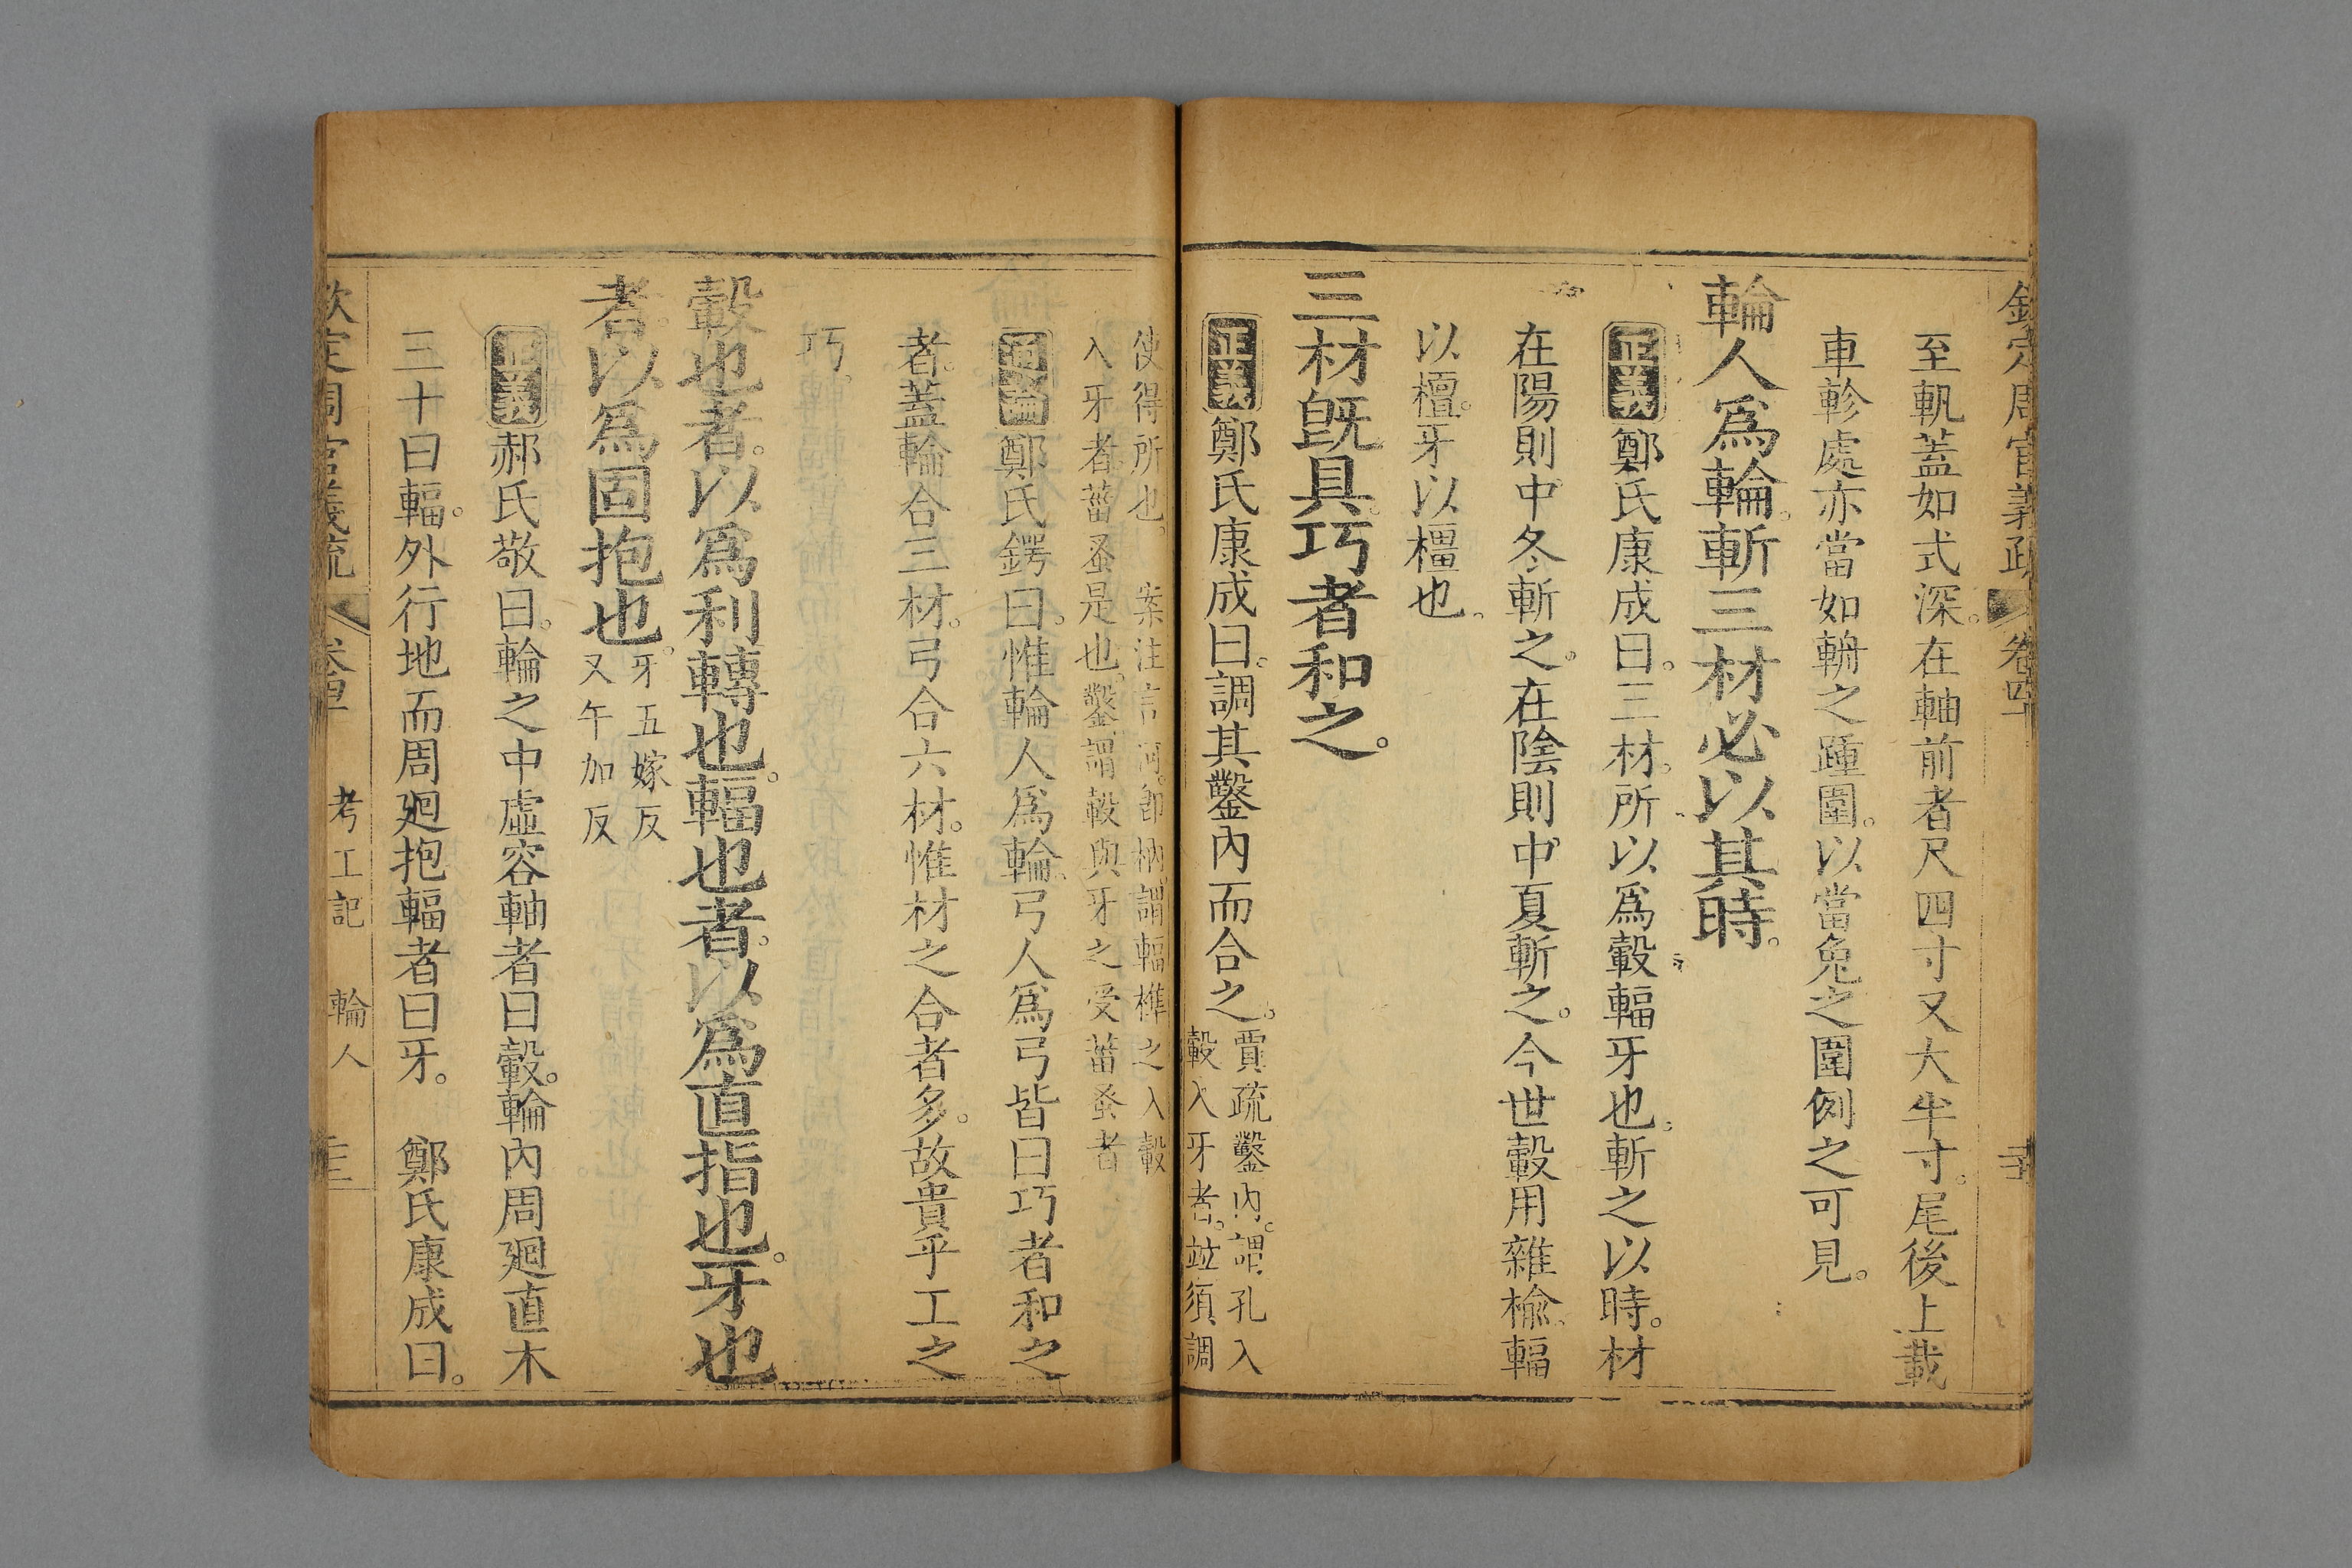 欽定周官義疏 卷四十
至軓蓋如式深。在軸前者尺四寸又大半寸。尾後上載
車軫處亦當如輈之踵圍。以當兔之圍例之可見。
輪人爲輪。斬三材必以其時。
正義鄭氏康成曰。三材。所以爲轂輻牙也。斬之以時。材
在陽則中冬斬之。在陰則中夏斬之。今世轂用雜榆。輻
以檀。牙以橿也。
三材旣具。巧者和之。
正義鄭氏康成曰。調其鑿內而合之。賈疏鑿內。謂孔入
轂入牙者。竝須調
使得所也。 案注言 卽枘。謂輻樁之入轂
入牙者菑蚤是也。鑿。謂轂與牙之受菑蚤者
通論鄭氏鍔曰。惟輪人爲輪。弓人爲弓皆曰巧者和之
者。蓋輪合三材。弓合六材。惟材之合者多。故貴乎工之
巧。
轂也者。以爲利轉也。輻也者。以爲直指也。牙也
者。以爲固抱也。牙五嫁反
又午加反
正義郝氏敬曰。輪之中虛容軸者曰轂。輪內周廻直木
三十曰輻。外行地而周廻抱輻者曰牙。 鄭氏康成曰。
欽定周官義疏 卷四十 考工記 輪人